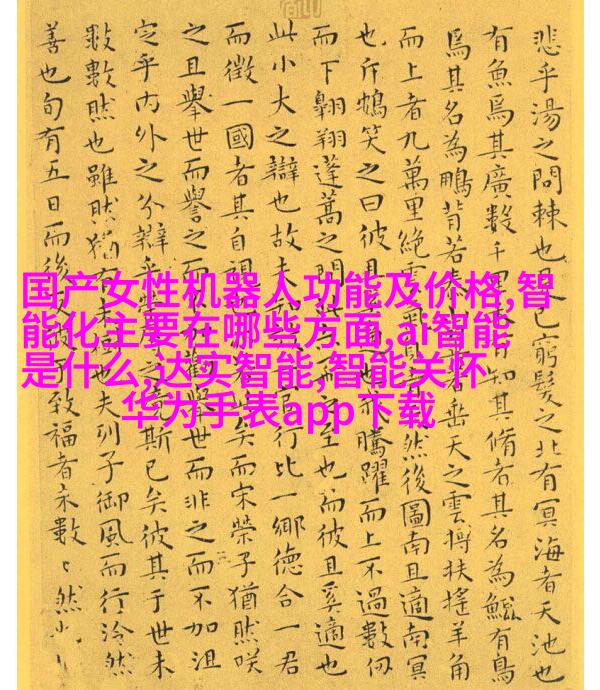 国产女性机器人功能及价格,智
能化主要在哪些方面,ai智能
是什么,达实智能,智能关怀
华为手表app下载
悲乎湯之問棘也已窮髮之北有冥海者天池也
有魚焉其廣數千有知其脩者其名為鯤有鳥
焉其名為鵬背若垂天之雲摶扶搖羊角
而上者九萬里絕雲然後圖南且適南冥
也斥鴳笑之曰彼且騰躍而上不過數仞
而下翱翔蓬蒿之間至也而彼且奚適也
此小大之辯也故夫官行比一鄉德合一君
而徵一國者其自視矣而宋榮子猶然咲
之且舉世而譽之而舉世而非之而不加沮
定乎內外之分辯乎斯已矣彼其于世未
數數然也雖然猶有未也夫列子御風而行泠然
善也旬有五日而後致福者未數〻然也